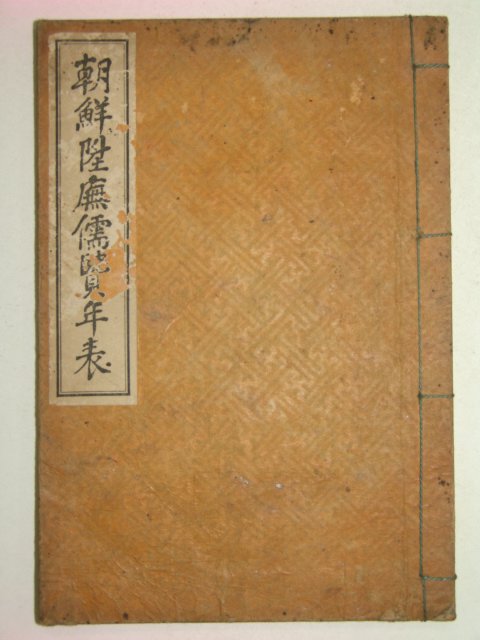 朝鮮陞廡儒賢年表